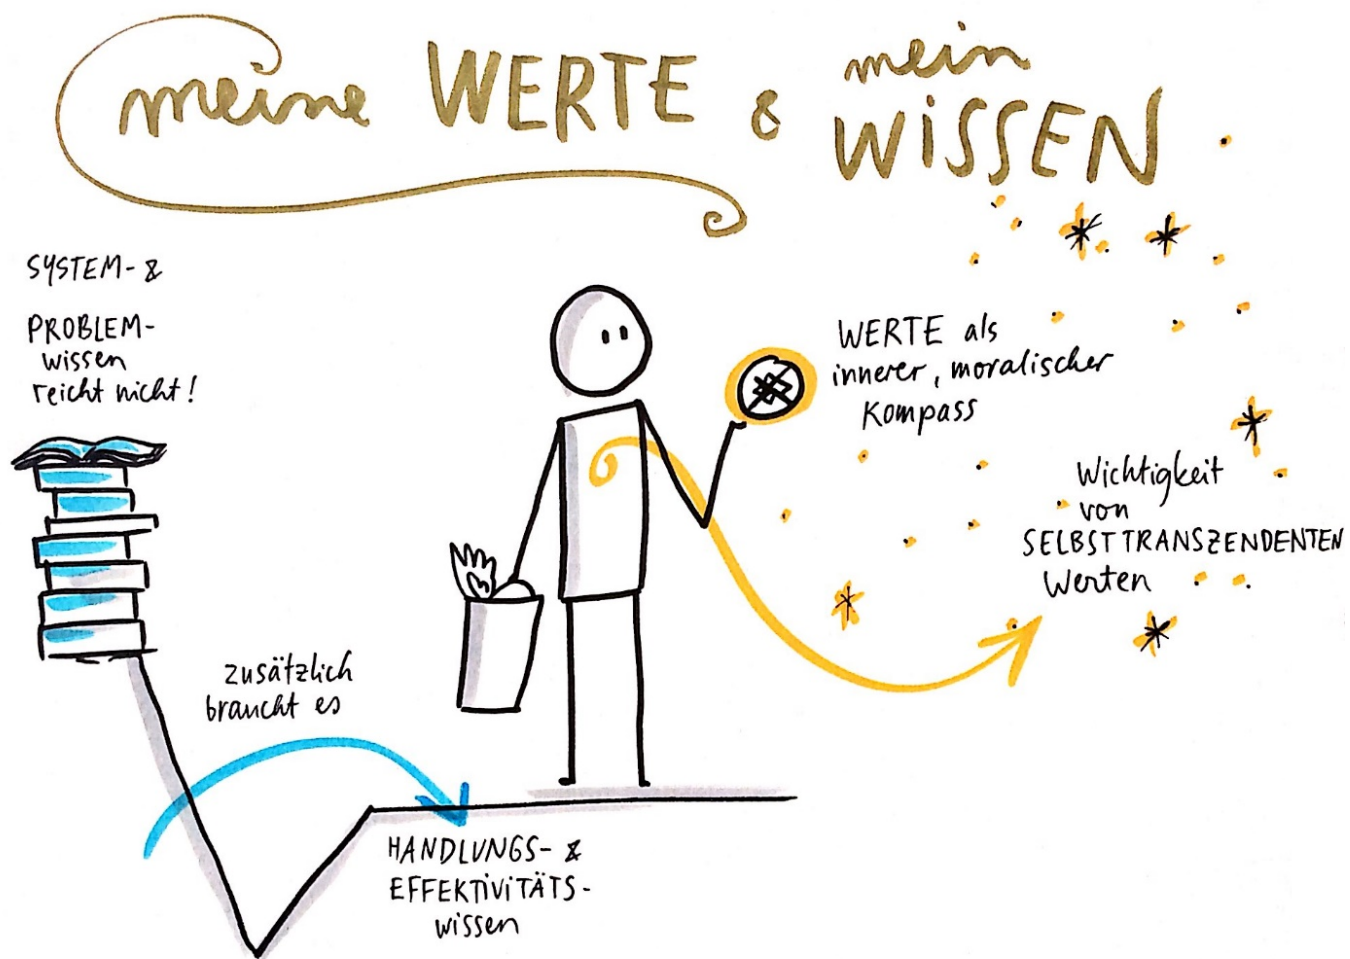 meine WERTE & mein WiSSEN
SYSTEM- &
PROBLEM-
wissen
reicht nicht!
WERTE als
innerer, moralischer
Kompass
Wichtigkeit
von
SELBSTTRANSZENDENTEN
Werten
zusätzlich
braucht es
HANDLUNGS- &
EFFEKTiViTÄTS-
wissen